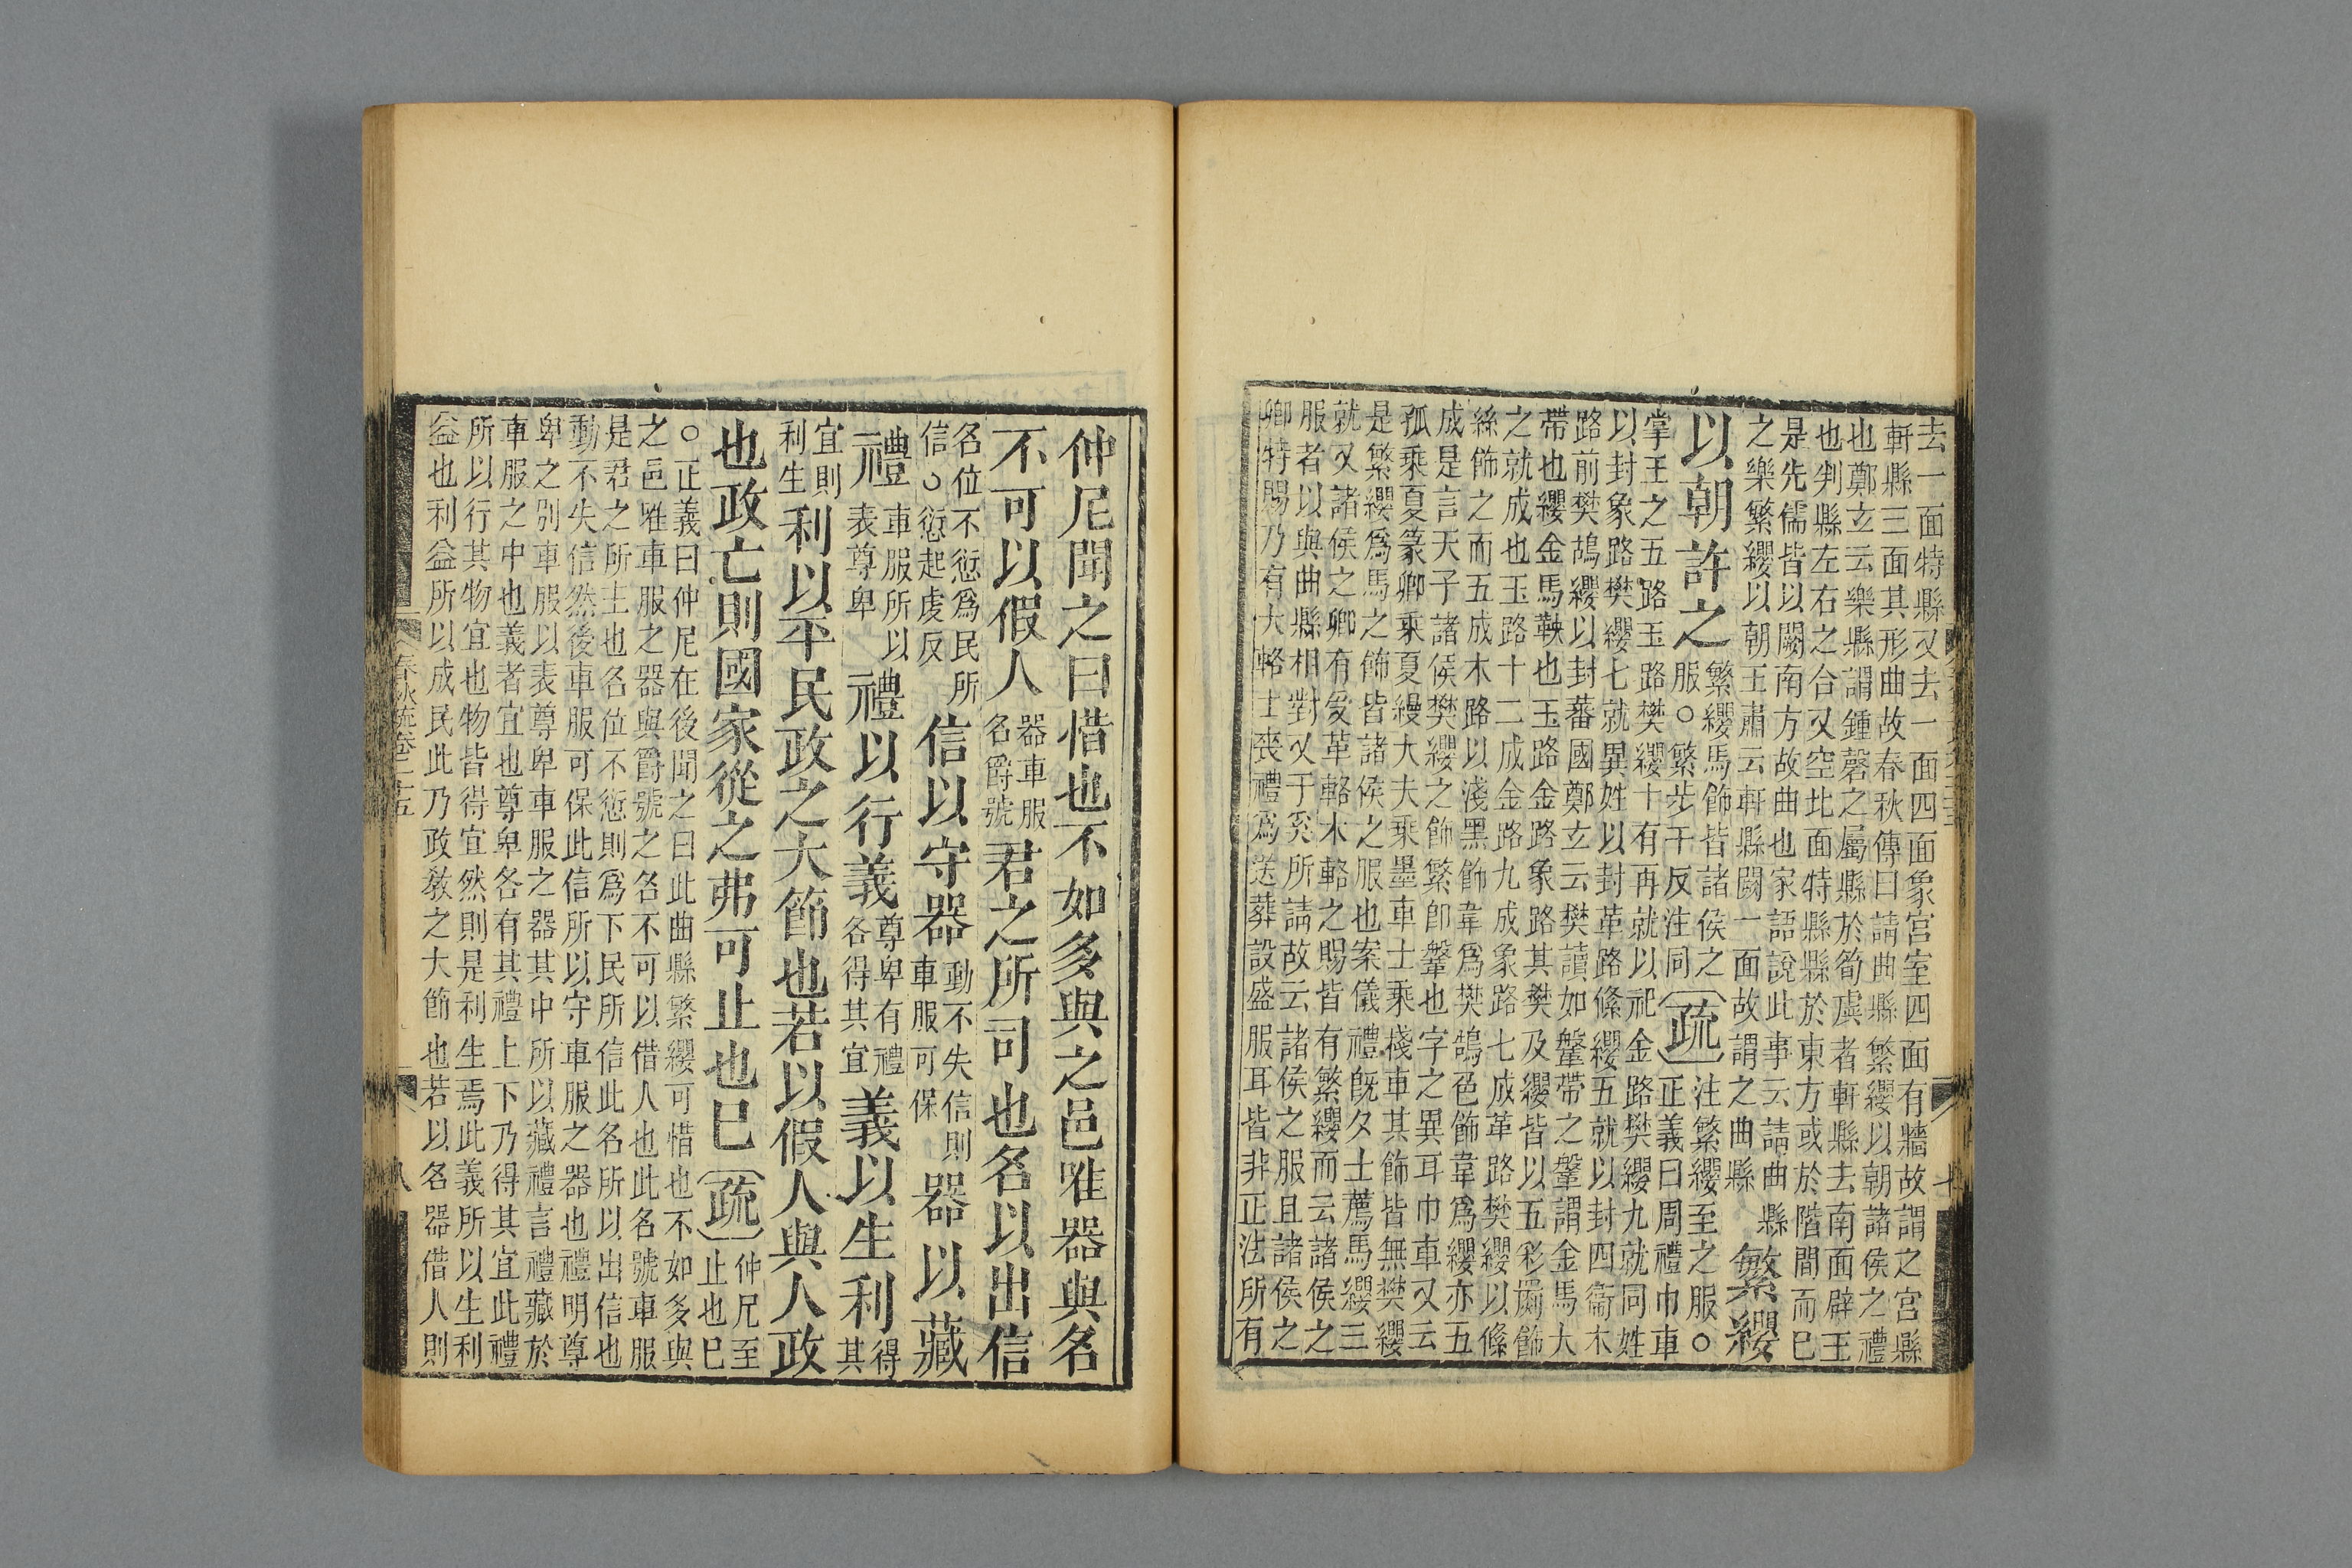 去一面特縣又去一面四面象宮室四面有牆故謂之宮縣
軒縣三面其形曲故春秋傳曰請曲縣繁纓以朝諸侯之禮
也鄭玄云樂縣謂鍾磬之屬縣於筍虡者軒縣去南面辟王
也判縣左右之合又空北面特縣縣於東方或於階間而已
是先儒皆以闕南方故曲也家語說此事云請曲縣
之樂繁纓以朝王肅云軒縣闕一面故謂之曲縣
繁纓
以朝許之
繁纓馬飾皆諸侯之
服○繁步干反注同
疏
注繁纓至之服○
正義曰周禮巾車
掌王之五路玉路樊纓十有再就以祀金路樊纓九就同姓
以封象路樊纓七就異姓以封革路絛纓五就以封四衞木
路前樊鵠纓以封蕃國鄭玄云樊讀如鞶帶之鞶謂金馬大
帶也纓金馬鞅也玉路金路象路其樊及纓皆以五彩罽飾
之就成也玉路十二成金路九成象路七成革路樊纓以絛
絲飾之而五成木路以淺黑飾韋爲樊鵠色飾韋爲纓亦五
成是言天子諸侯樊纓之飾繁卽鞶也字之異耳巾車又云
孤乘夏篆卿乘夏縵大夫乘墨車士乘棧車其飾皆無樊纓
是繁纓爲馬之飾皆諸侯之服也案儀禮旣夕士薦馬纓三
就又諸侯之卿有受革輅木輅之賜皆有繁纓而云諸侯之
服者以與曲縣相對又于奚所請故云諸侯之服且諸侯之
卿特賜乃有大輅士喪禮爲送葬設盛服耳皆非正法所有
仲尼聞之曰惜也不如多與之邑唯器與名
不可以假人
器車服
名爵號
君之所司也名以出信
名位不愆爲民所
信○愆起虔反
信以守器
動不失信則
車服可保
器以藏
禮
車服所以
表尊卑
禮以行義
尊卑有禮
各得其宜
義以生利
得其
宜則
利生
利以平民政之大節也若以假人與人政
也政亡則國家從之弗可止也已
疏
仲尼至
止也已
○正義曰仲尼在後聞之曰此曲縣繁纓可惜也不如多與
之邑唯車服之器與爵號之名不可以借人也此名號車服
是君之所主也名位不愆則爲下民所信此名所以出信也
動不失信然後車服可保此信所以守車服之器也禮明尊
卑之別車服以表尊卑車服之器其中所以藏禮言禮藏於
車服之中也義者宜也尊卑各有其禮上下乃得其宜此禮
所以行其物宜也物皆得宜然則是利生焉此義所以生利
益也利益所以成民此乃政教之大節也若以名器借人則
春秋疏卷二十五
八